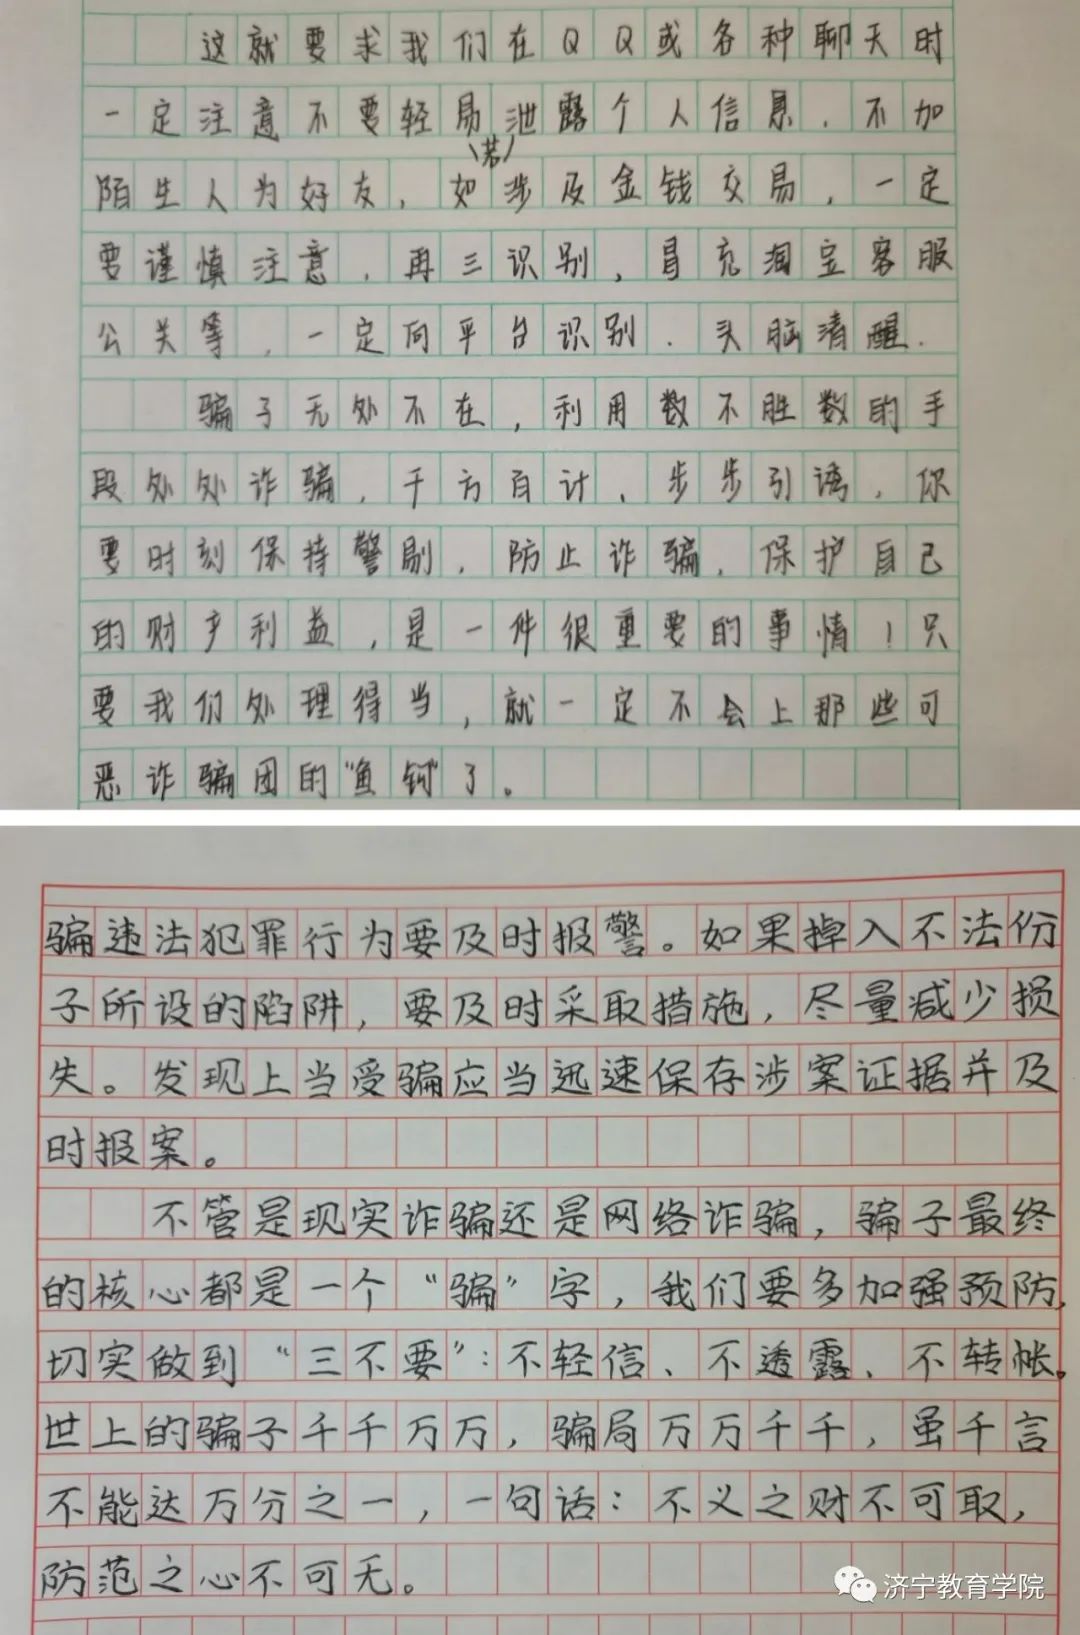 这就要求我们在QQ或各种聊天时
一定注意不要轻易泄露个人信息，不加
（若）
陌生人为好友，如涉及金钱交易，一定
要谨慎注意，再三识别，冒充淘宝客服
公关等，一定向平台识别．头脑清醒．
骗子无处不在，利用数不胜数的手
段处处诈骗，千方百计、步步引诱，你
要时刻保持警剔，防止诈骗，保护自己
的财产利益，是一件很重要的事情！只
要我们处理得当，就一定不会上那些可
恶诈骗团的“鱼钩”了。
骗违法犯罪行为要及时报警。如果掉入不法份
子所设的陷阱，要及时采取措施，尽量减少损
失。发现上当受骗应当迅速保存涉案证据并及
时报案。
不管是现实诈骗还是网络诈骗，骗子最终
的核心都是一个“骗”字，我们要多加强预防，
切实做到“三不要”：不轻信、不透露、不转帐。
世上的骗子千千万万，骗局万万千千，虽千言
不能达万分之一，一句话：不义之财不可取，
防范之心不可无。
济宁教育学院